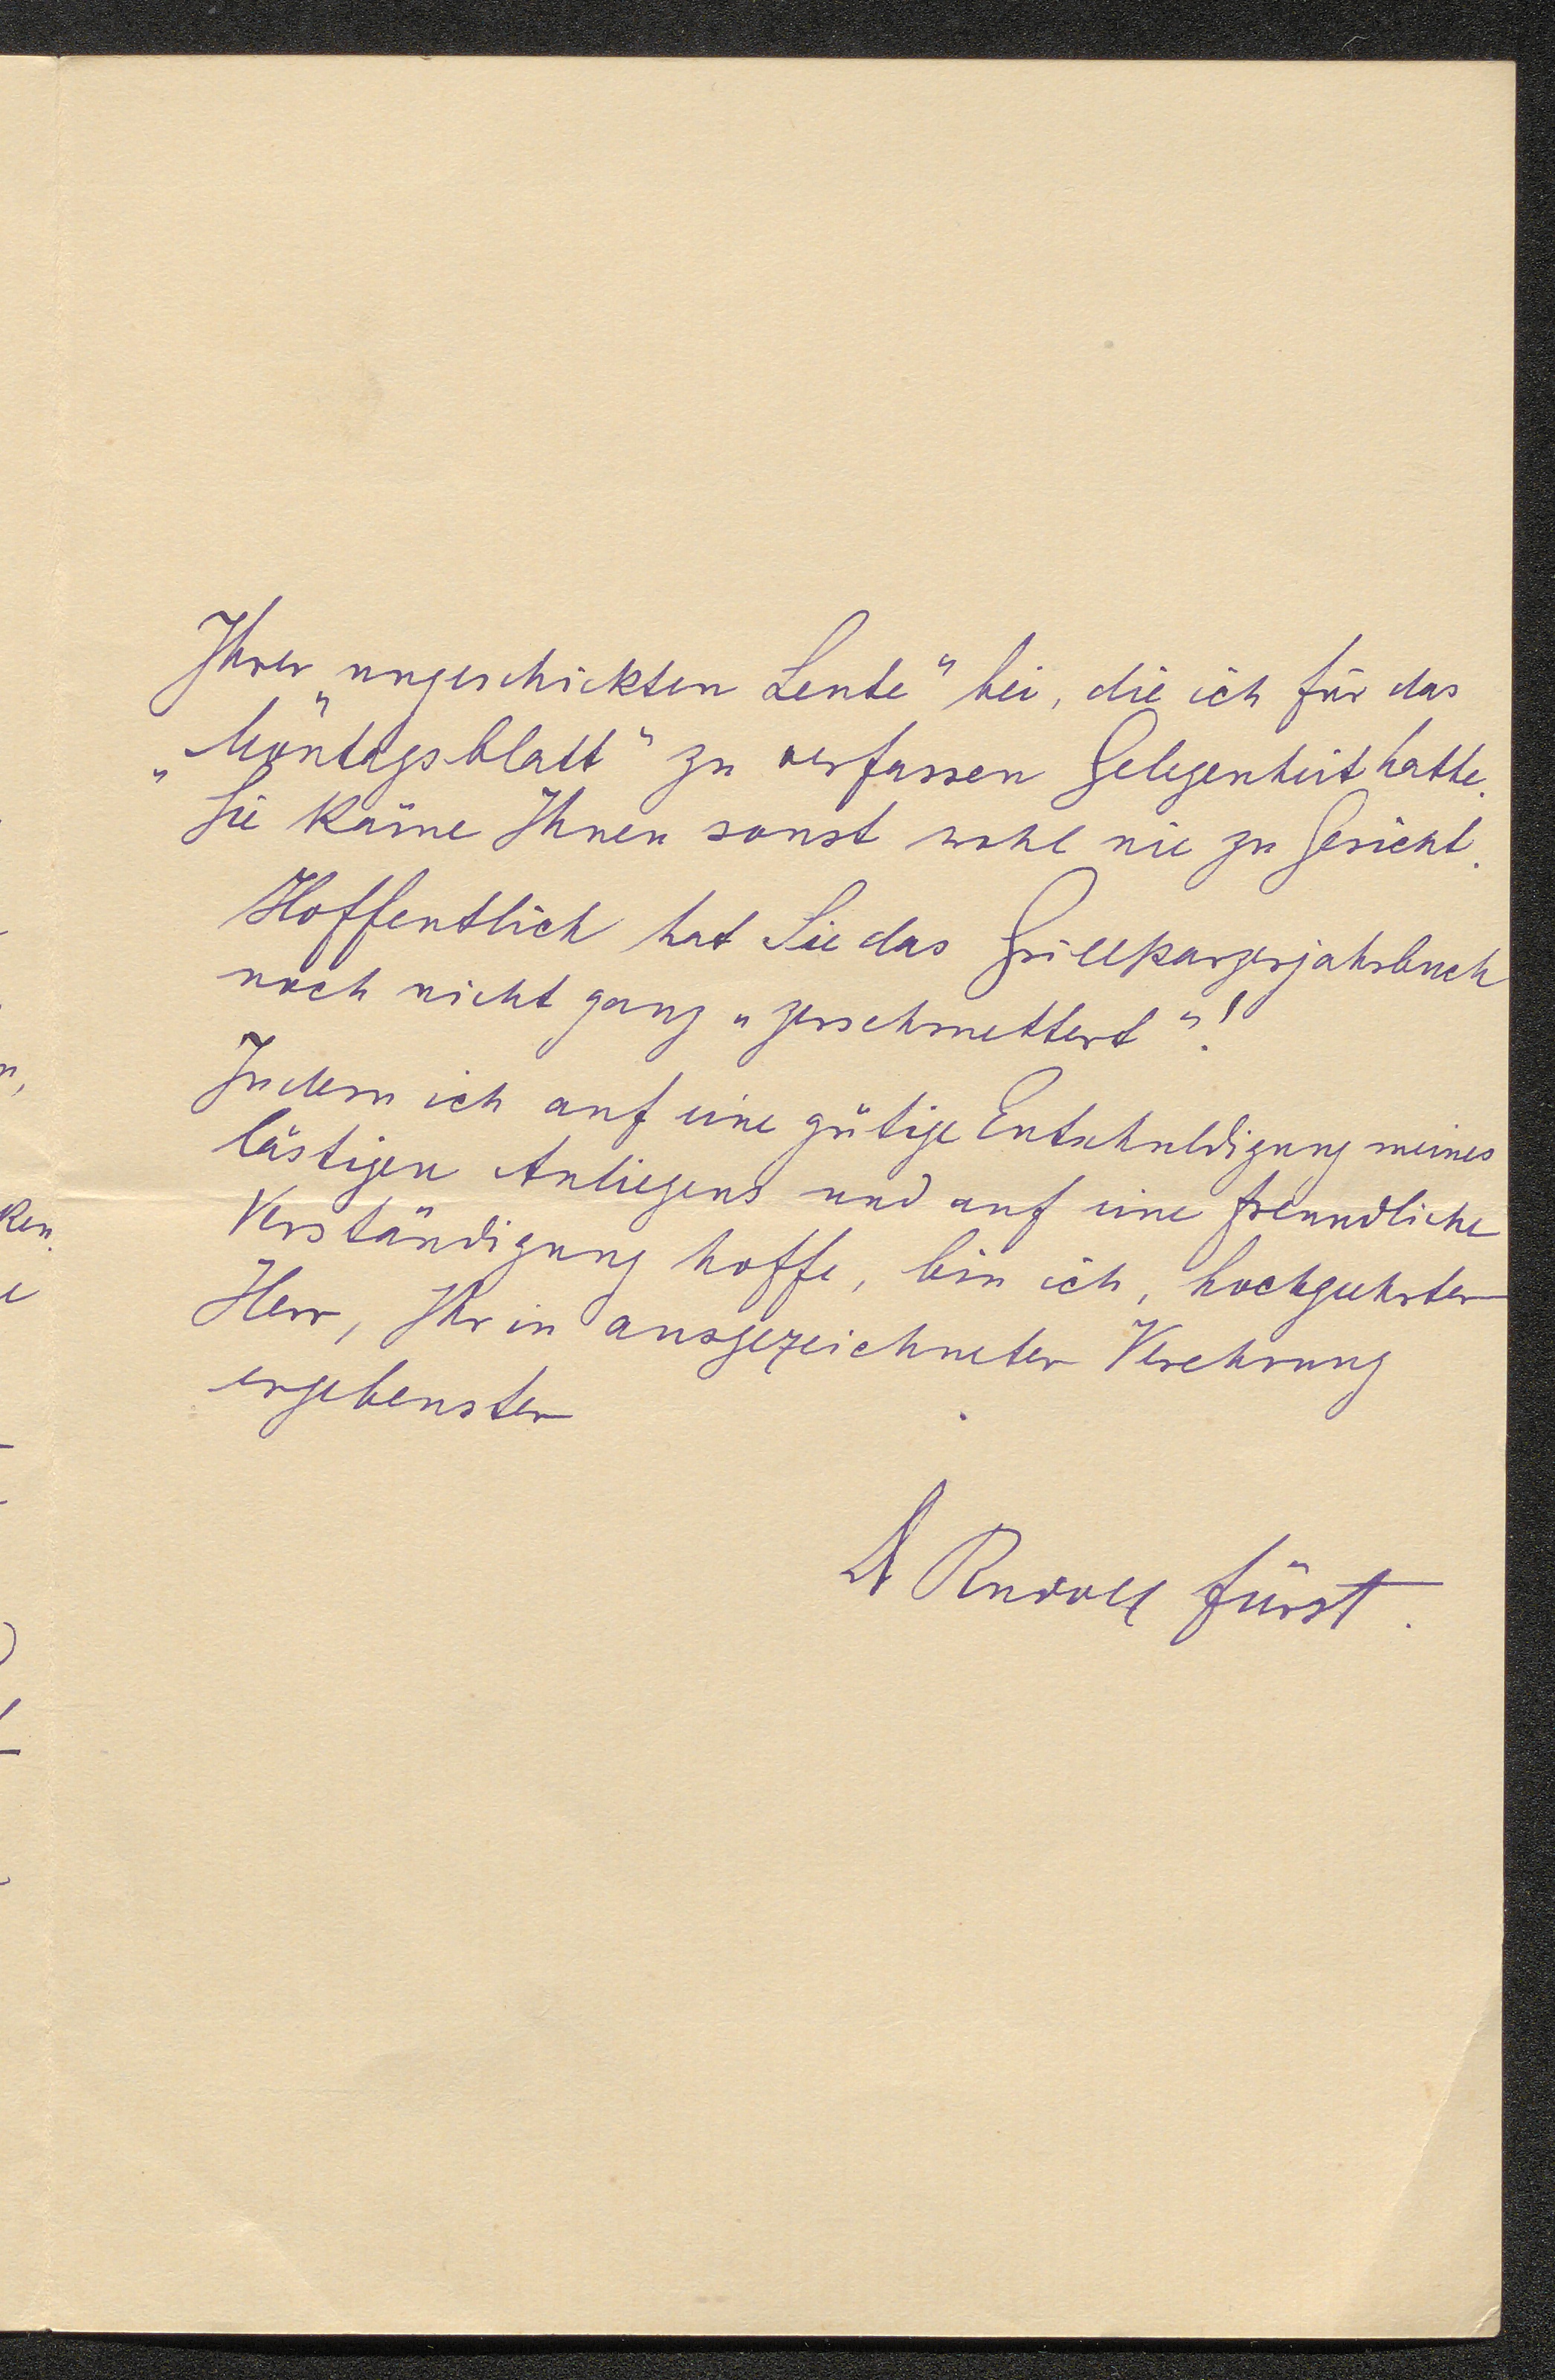 Ihrer „ungeschickten Leute“ bei, die ich für das
„Montagsblatt“ zu verfassen Gelegenheit hatte.
Sie käme Ihnen sonst wohl nie zu Gesicht.
Hoffentlich hat Sie das Grillparzerjahrbuch
noch nicht ganz „zerschmettert“!
Indem ich auf eine gütige Entschuldigung meines
lästigen Anliegens und auf eine freundliche
Verständigung hoffe, bin ich, hochgeehrter
Herr, Ihr in ausgezeichneter Verehrung
ergebenster
Dr Rudolf Fürst.